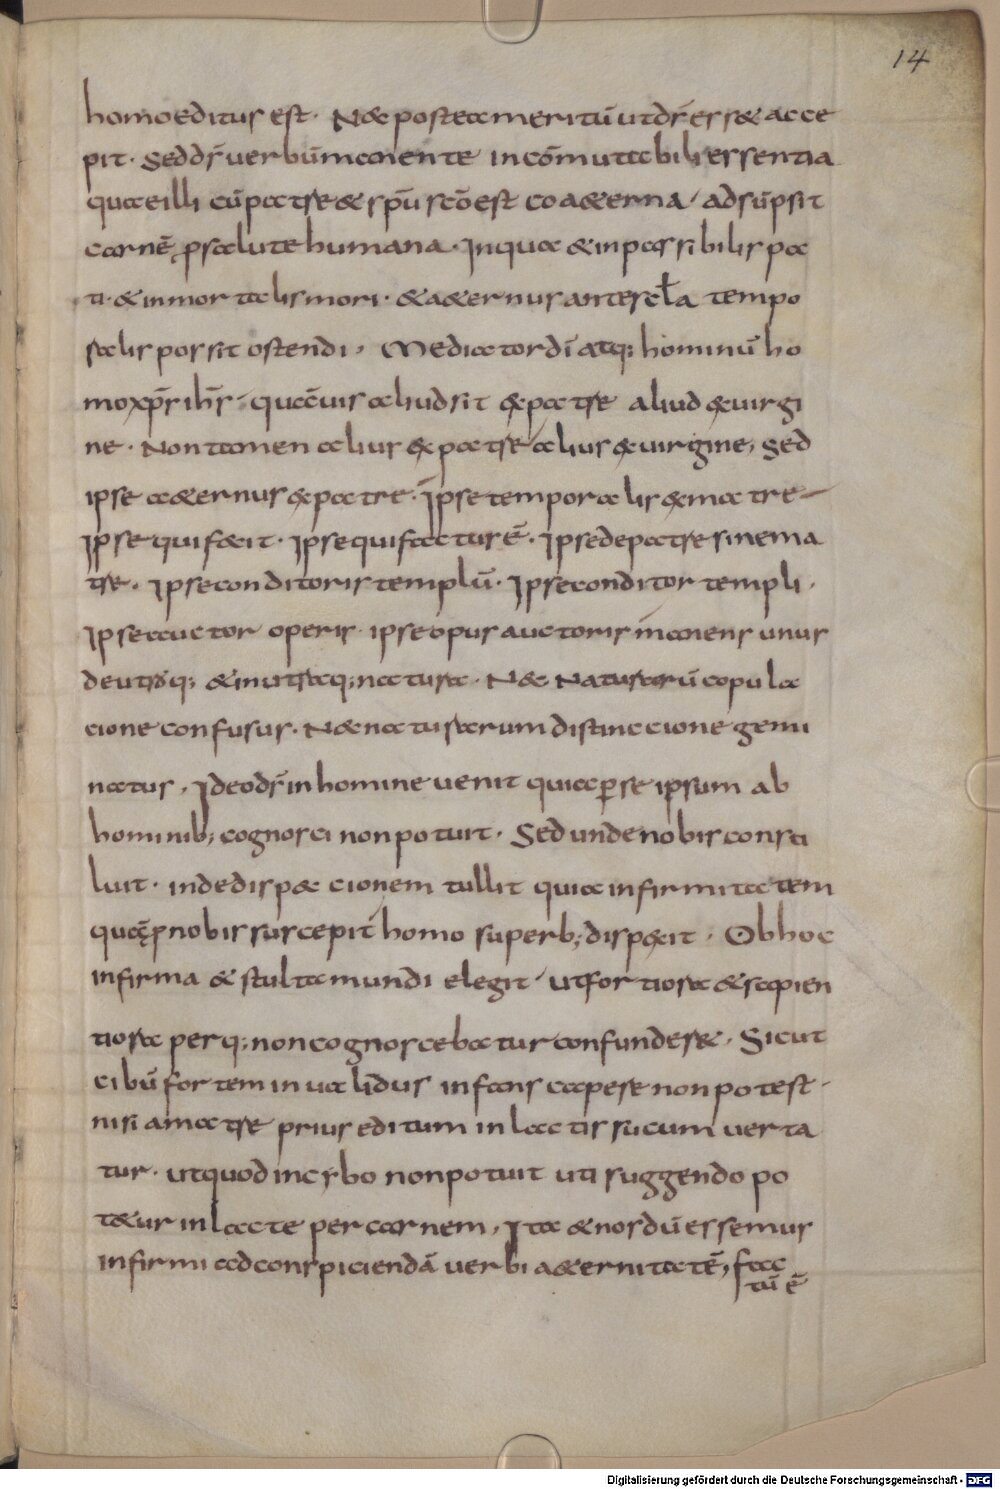 14
homo editus est. Nec postea meritū ut dr̄ esset acce
pit. Sed dr̄ verbū manente incōmutabili essentia
quae illi cū patre & spū scō est coaeterna, adsūpsit
carnē p salute humana. In qua & inpassibilis pa
ti. & inmortalis mori. & aeternus ante scła tempo
ralis possit ostendi, Mediator dī atq; hominū ho
mo xp̄s ihs̄, quāuis aliud sit ex patre aliud ex uirgi
ne. Non tamen alius ex patre alius ex uirgine, Sed
ipse aeternus ex patre. Ipse temporalis ex matre
Ipse qui fecit. Ipse qui factus ē. Ipse de patre sine ma
tre. Ipse conditoris templū. Ipse conditor templi.
Ipse auctor operis. ipse opus auctoris manens unus
de utroq; & in utraq; natura. Nec naturarū copula
cione confusus. Nec naturarum distinccione gemi
natus, Ideo dr̄ in homine uenit quia per se ipsum ab
hominib; cognosci non potuit. Sed unde nobis consu
luit. inde dispeccionem tullit quia infirmitatem
quā p nobis suscepit homo superb; dispexit. Ob hoc
infirma & stulta mundi elegit, ut fortiora & sapien
tiora per q; non cognoscebatur confunderet. Sicut
cibū fortem inualidus infans capere non potest
nisi a matre prius editum in lactis sucum uerta
tur. ut quod in cybo non potuit uti suggendo po
tetur in lacte per carnem, Ita & nos dū essemus
infirmi ad conspiciendā uerbi aeternitatē, fac
tū ē
Digitalisierung gefördert durch die Deutsche Forschungsgemeinschaft - DFG